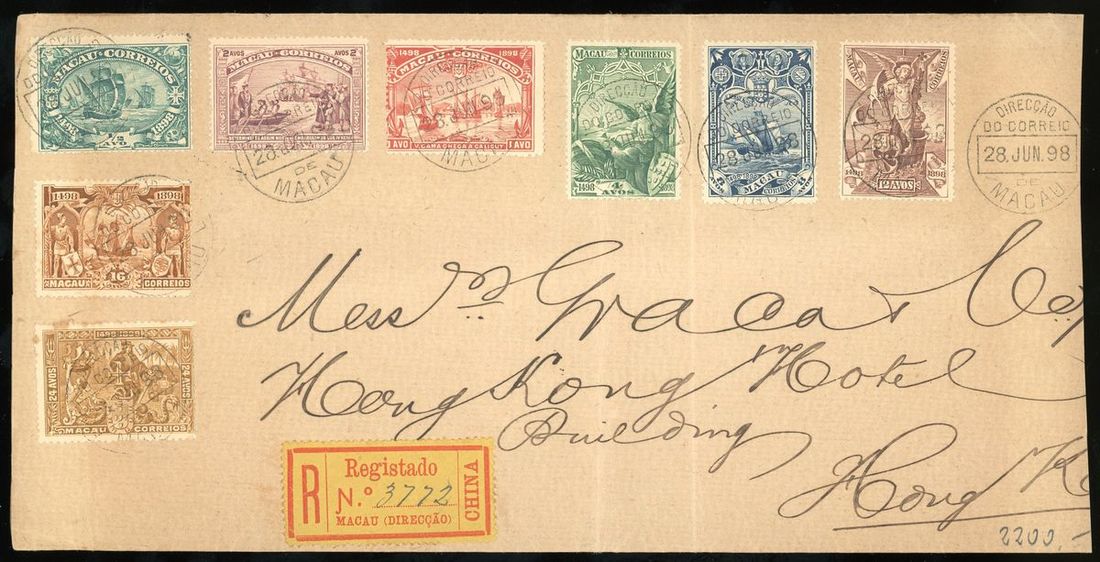 MACAU·CORREIOS
1498 1/2 1898
AVO
2 AVOS 2 AVOS 2
MACAU-CORREIO
1498 1898
MACAU CORREIOS
1 AVO 1 AVO
V. GAMA CHEGA A CALICUT
MACAU CORREIOS
1498 4 1898
AVOS
MACAU
CORREIOS
MACAU CORREIOS
12 AVOS 1898
DIRECÇÃO
DO CORREIO
28.JUN.98
DE
MACAU
28.JUN.98
DE
MACAU
DIRECÇÃO
DO CORREIO
28.JUN.98
MACAU
1498 1898
MACAU 16 CORREIOS
1498-1898
24 AVOS 24 AVOS
MACAU CORREIOS
Messrs Graca & Co
Hong Kong Hotel
Building
Hong K
R Registado
N.º 3772
MACAU (DIRECÇÃO)
CHINA
2200,-